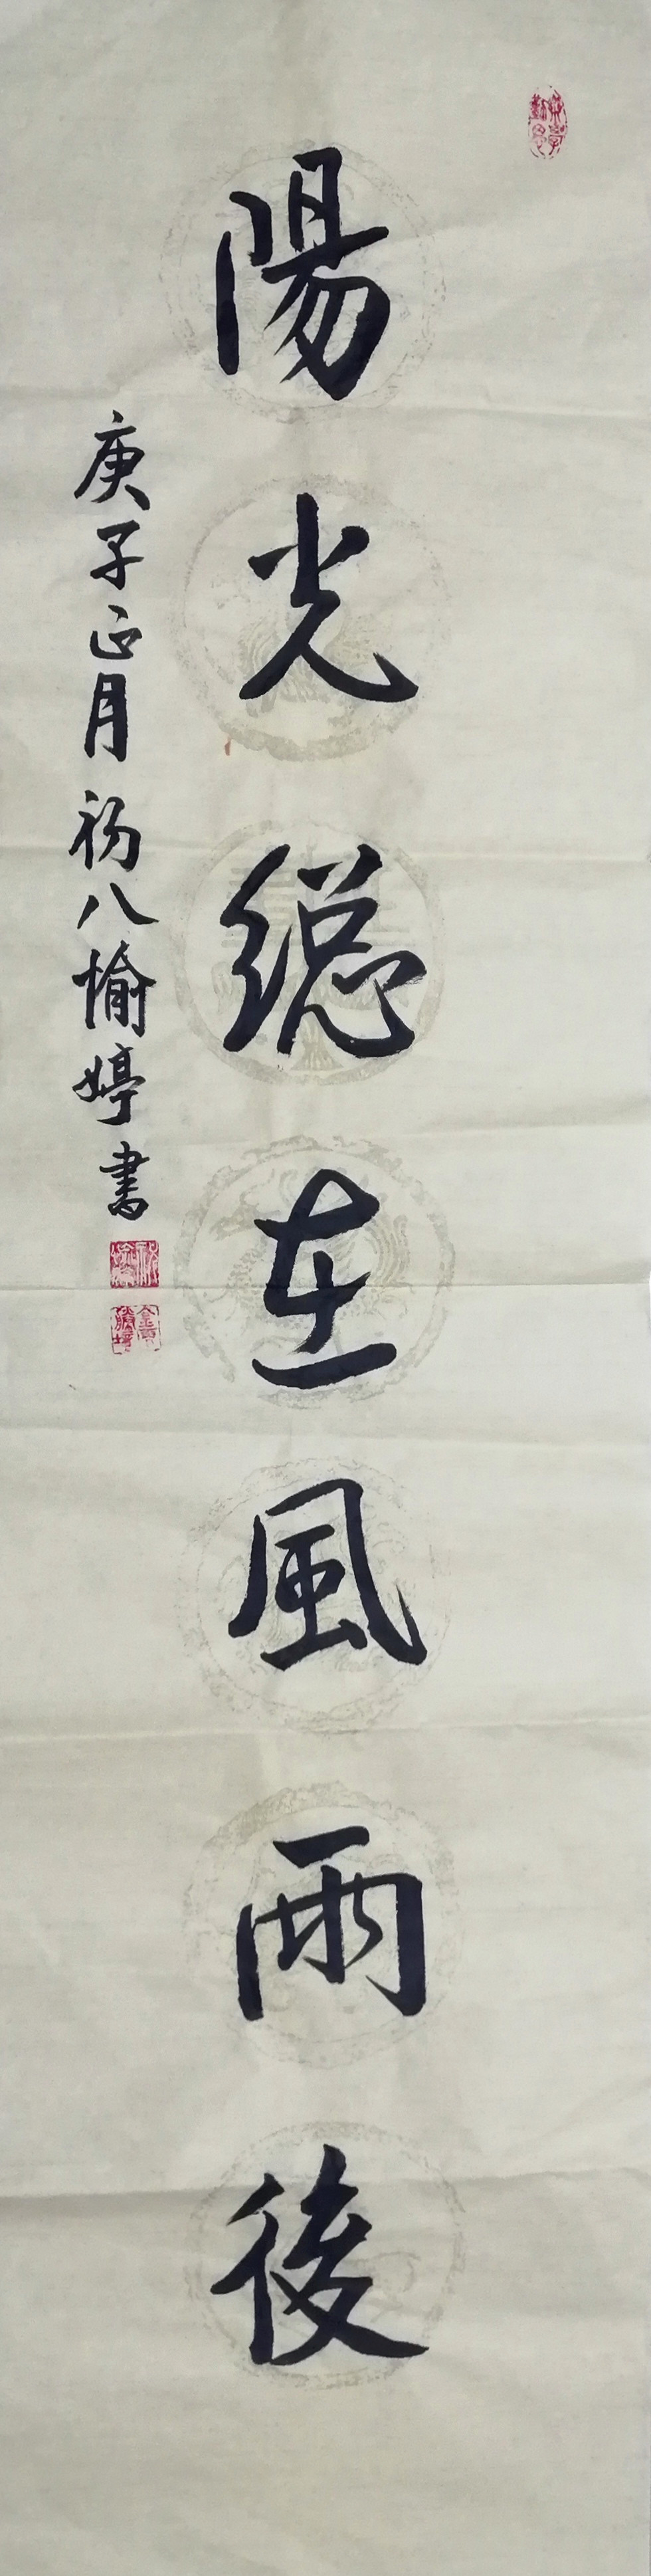 陽光總在風雨後
庚子正月初八愉婷書